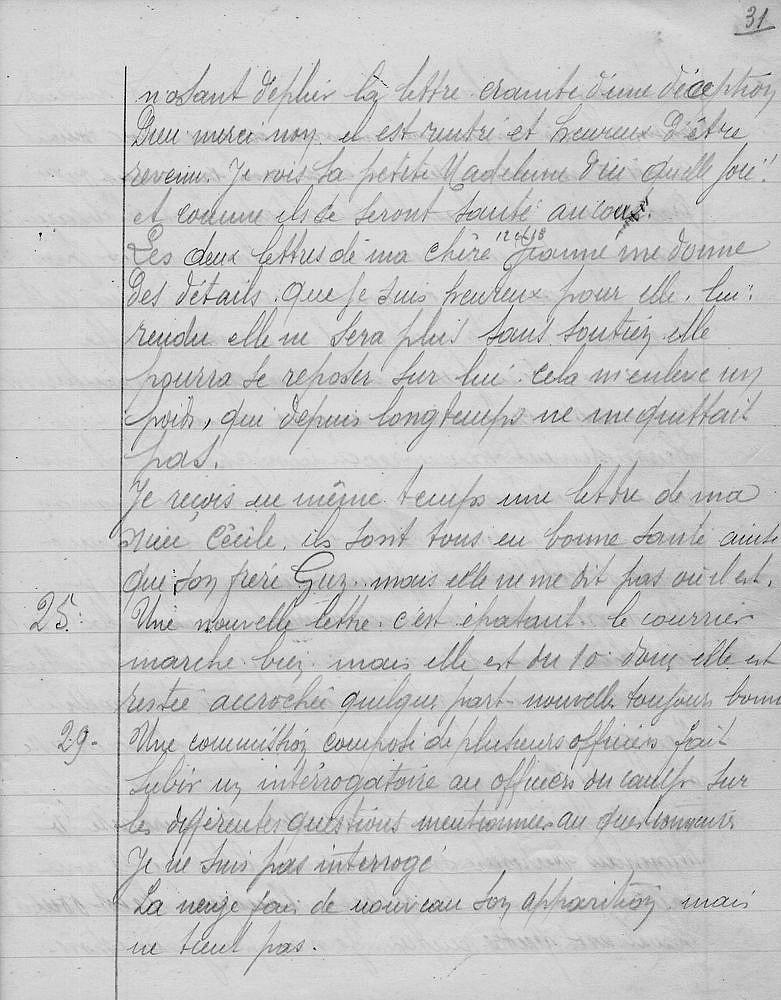 31
n'osant déplier la lettre crainte d'une déception
Dieu merci non, il est rentré et heureux d'être
revenu. Je vois la petite Madeleine d'ici quelle joie!
et comme ils se seront sauté au cou!
12 et 18
Les deux lettres de ma chère Jeanne me donne
des détails. que je suis heureux pour elle, lui
rendu elle ne sera plus sans soutien elle
pourra se reposer sur lui. cela m'enlève un
poids, qui depuis longtemps ne me quittait
pas.
Je reçois en même temps une lettre de ma
nièce Cécile, ils sont tous en bonne santé ainsi
que son frère Guy. mais elle ne me dit pas où il est.
25. Une nouvelle lettre. c'est épatant. le courrier
marche bien. mais elle est du 10. donc elle est
restée accrochée quelque part. nouvelles toujours bonnes
29. Une commission composé de plusieurs officiers fait
subir un interrogatoire au officiers du camp sur
les différentes questions mentionnées au questionnaire
Je ne suis pas interrogé
La neige fais de nouveau son apparition. mais
ne tient pas.